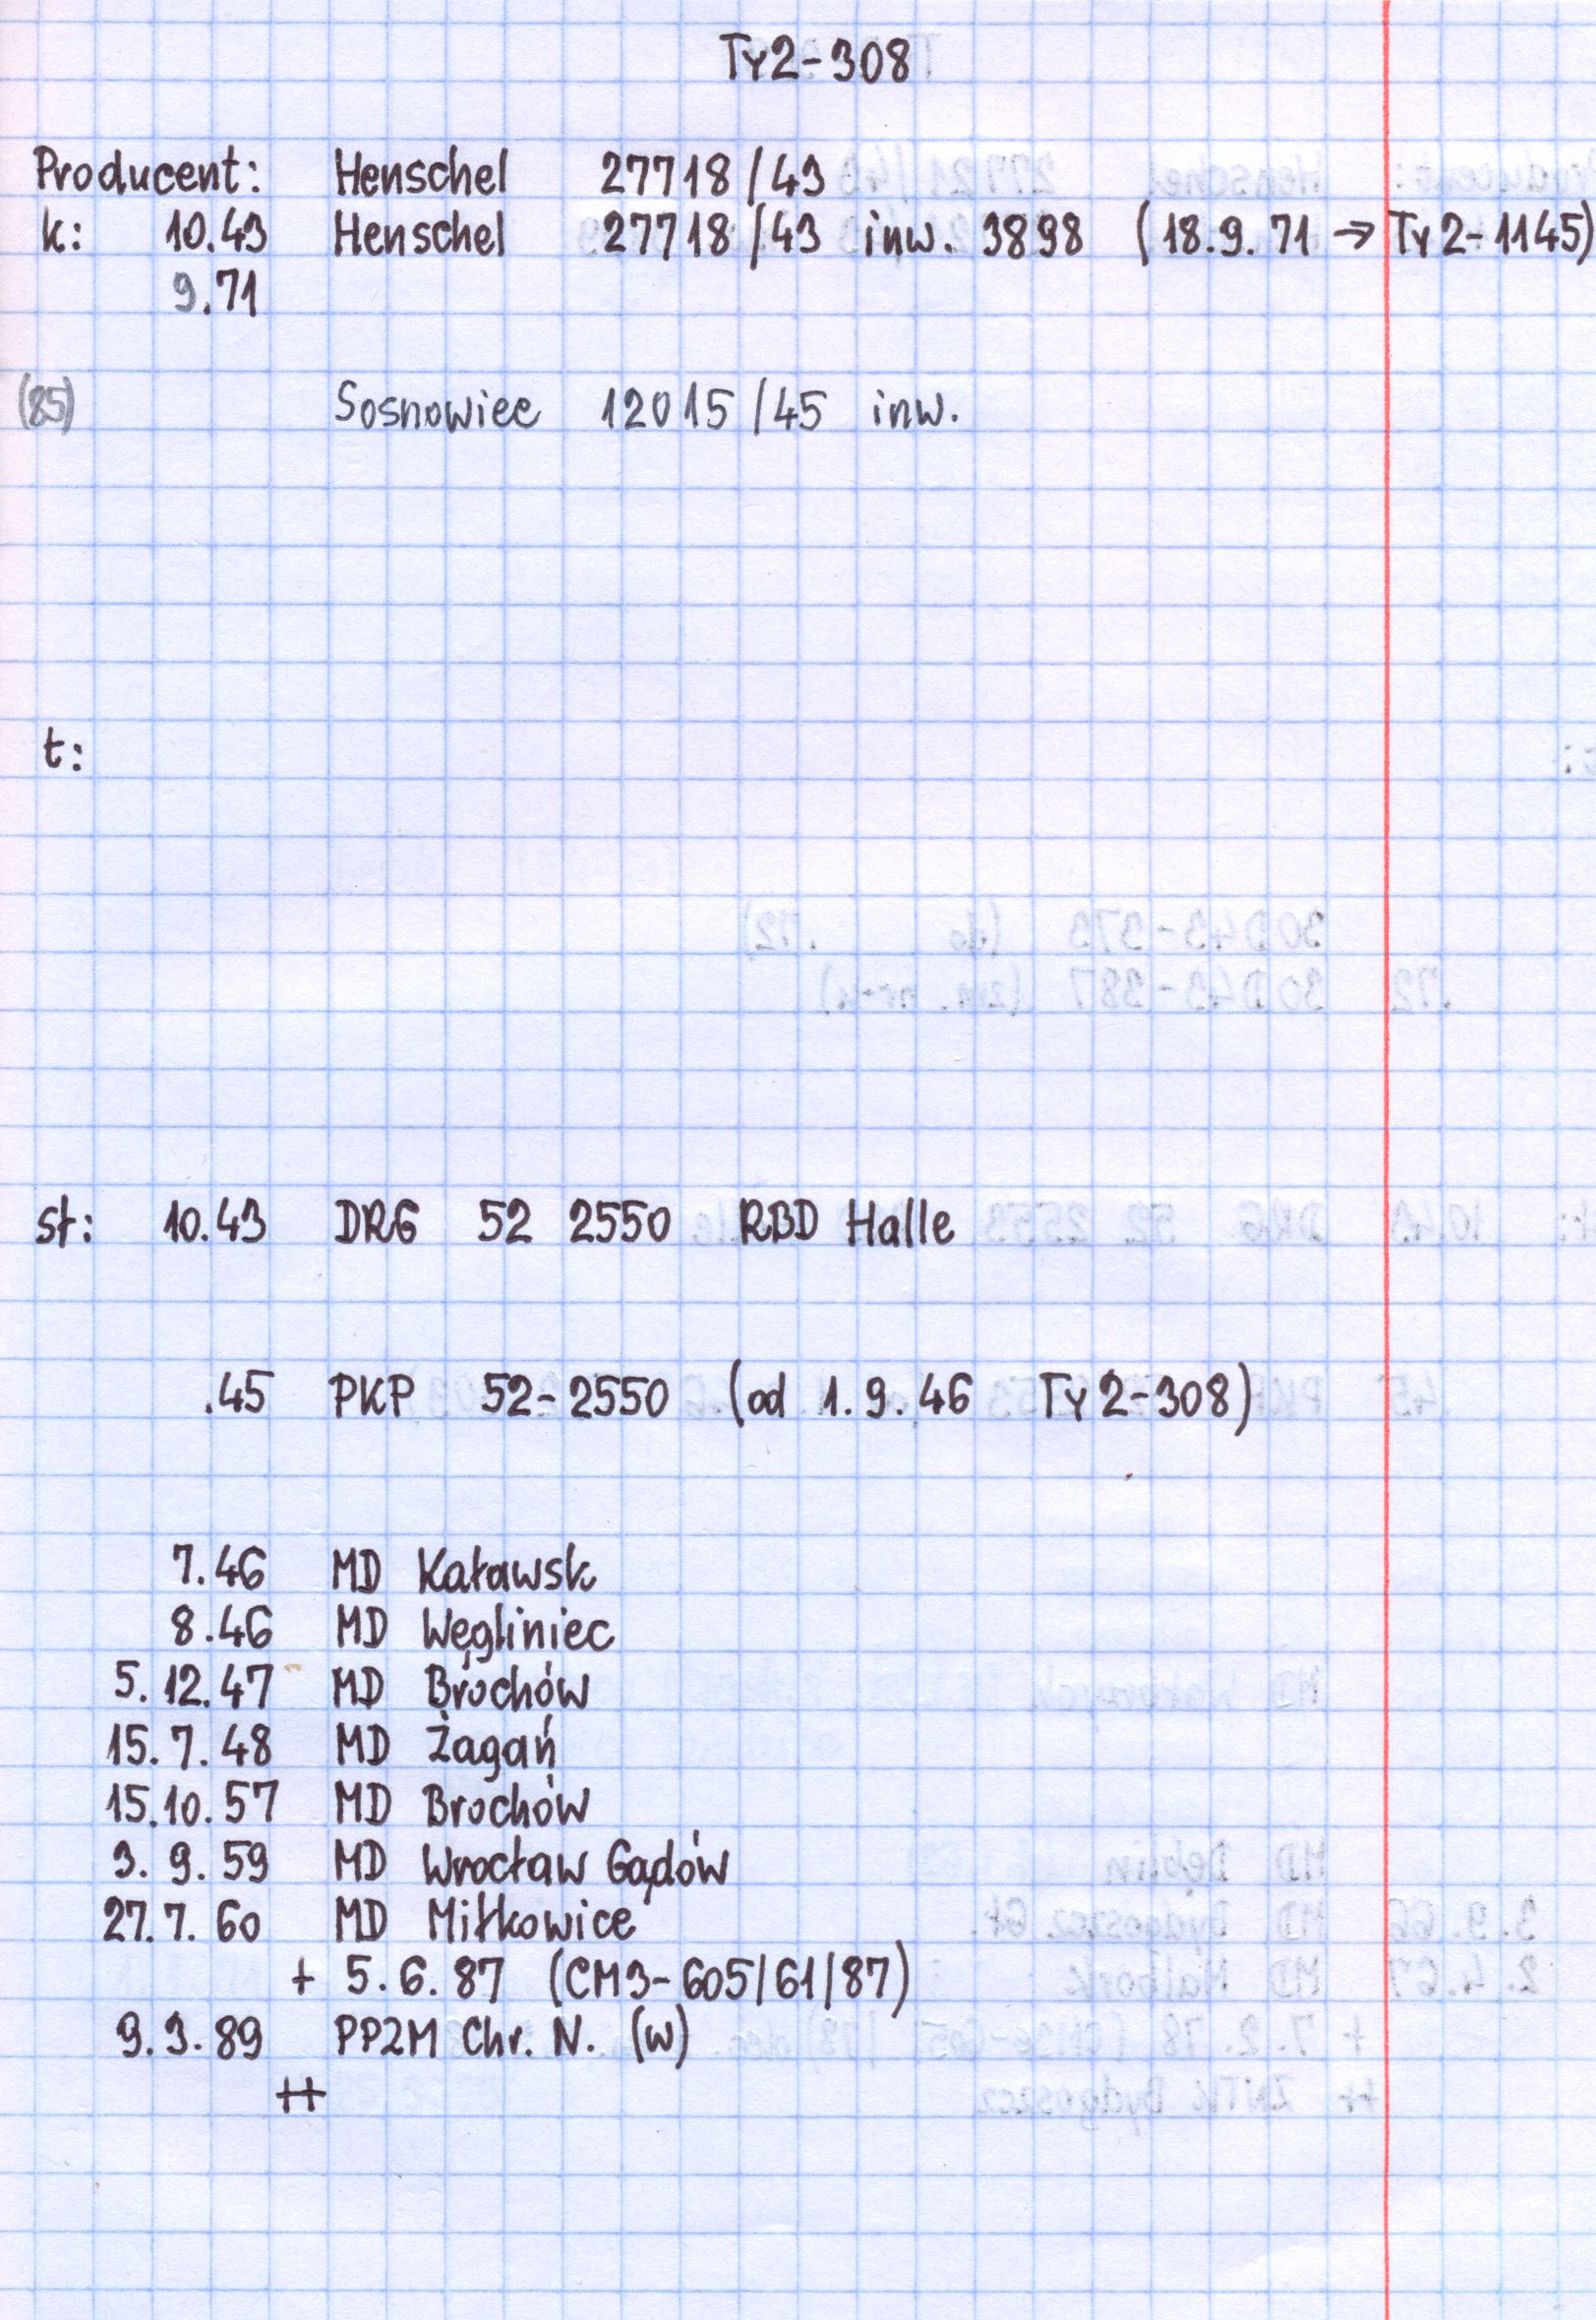 Ty2-308
Producent: Henschel 27718/43
k: 10.43 Henschel 27718/43 inw. 3898 (18.9.71 → Ty2-1145)
9.71
(85) Sosnowiec 12015/45 inw.
t:
st: 10.43 DRG 52 2550 RBD Halle
.45 PKP 52-2550 (od 1.9.46 Ty2-308)
7.46 MD Kaławsk
8.46 MD Węgliniec
5.12.47 MD Brochów
15.7.48 MD Żagań
15.10.57 MD Brochów
3.9.59 MD Wrocław Gądów
27.7.60 MD Miłkowice
+ 5.6.87 (CM3-605/61/87)
9.3.89 PPZM Chr. N. (w)
++